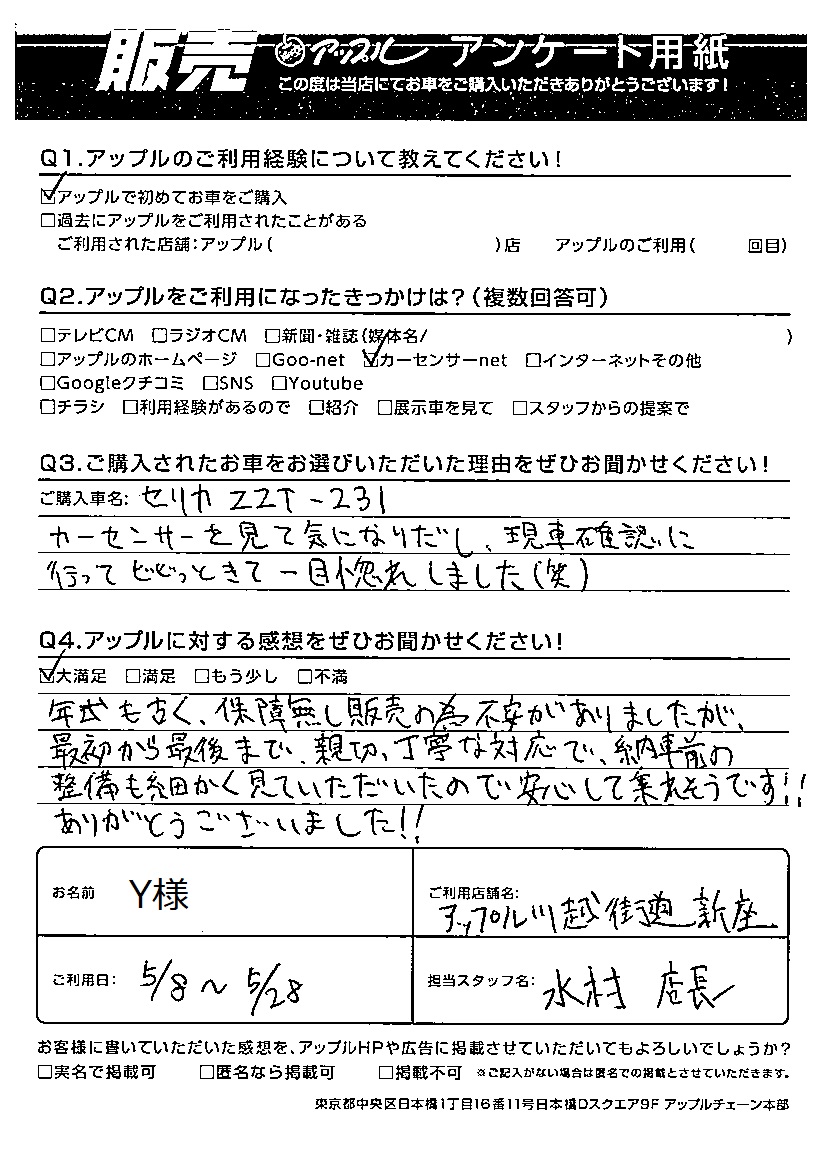 販売 アップル アンケート用紙
この度は当店にてお車をご購入いただきありがとうございます!
Q1.アップルのご利用経験について教えてください!
☑アップルで初めてお車をご購入
□過去にアップルをご利用されたことがある
ご利用された店舗:アップル( )店 アップルのご利用( 回目)
Q2.アップルをご利用になったきっかけは?(複数回答可)
□テレビCM □ラジオCM □新聞・雑誌(媒体名/ )
□アップルのホームページ □Goo-net ☑カーセンサーnet □インターネットその他
□Googleクチコミ □SNS □Youtube
□チラシ □利用経験があるので □紹介 □展示車を見て □スタッフからの提案で
Q3.ご購入されたお車をお選びいただいた理由をぜひお聞かせください!
ご購入車名: セリカ ZZT-231
カーセンサーを見て気になりだし、現車確認に
行ってビビっときて一目惚れしました(笑)
Q4.アップルに対する感想をぜひお聞かせください!
☑大満足 □満足 □もう少し □不満
年式も古く、保障無し販売の為不安がありましたが、
最初から最後まで、親切、丁寧な対応で、納車前の
整備も細かく見ていただいたので安心して乗れそうです!!
ありがとうございました!!
お名前 Y様
ご利用店舗名:
アップル川越街道新座
ご利用日: 5/8~5/28
担当スタッフ名: 水村 店長
お客様に書いていただいた感想を、アップルHPや広告に掲載させていただいてもよろしいでしょうか?
□実名で掲載可 □匿名なら掲載可 □掲載不可 ※ご記入がない場合は匿名での掲載とさせていただきます。
東京都中央区日本橋1丁目16番11号日本橋Dスクエア9F アップルチェーン本部